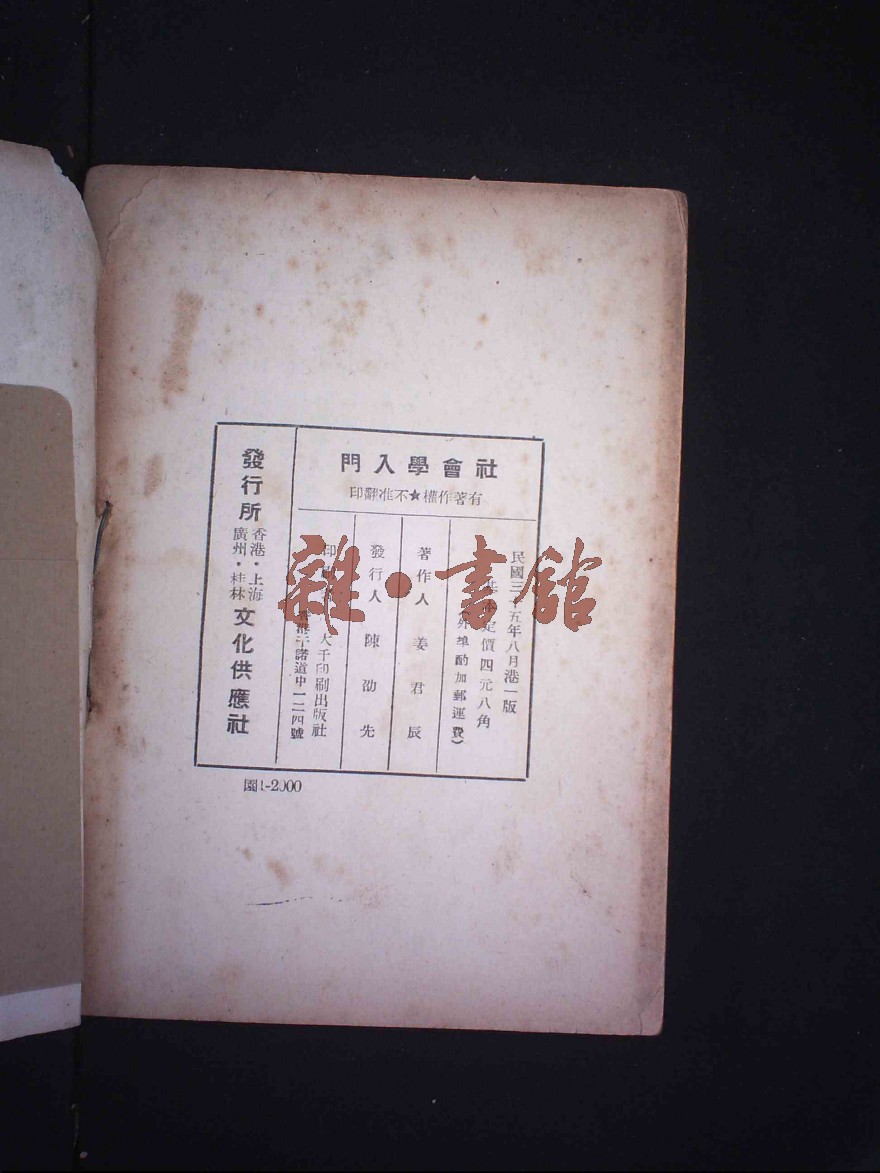 社會學入門
有著作權★不准翻印
民國三十五年八月港一版
定價四元八角
(外埠酌加郵運費)
著作人 姜君辰
發行人 陳劭先
印
大千印刷出版社
香港干諾道中一二四號
發行所
香港·上海
廣州·桂林
文化供應社
雜·書館